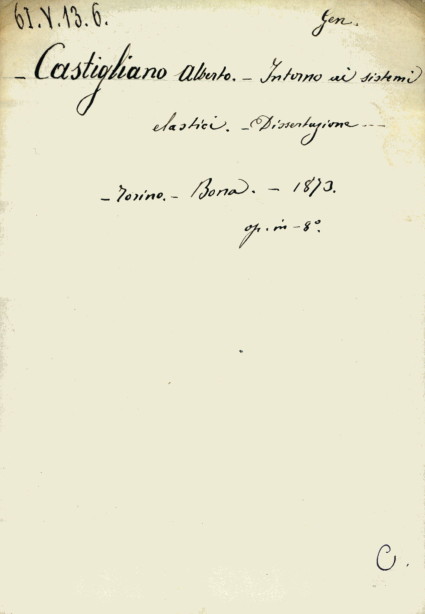 61.V.13.6. Gen.
- Castigliano Alberto. - Intorno ai sistemi
elastici. - Dissertazione - -
- Torino. - Bona. - 1873.
op. in - 8°.
C.